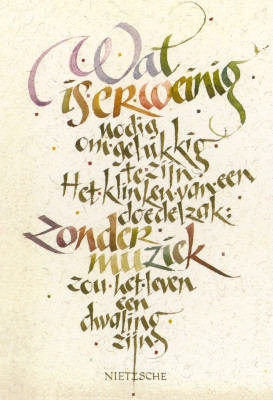 Wat
is er weinig
nodig
om·gelukkig
te·zijn·
Het·klinken·van·een
doedelzak:
zonder
muziek
zou·het·leven
een
dwaling
zijn
NIETZSCHE